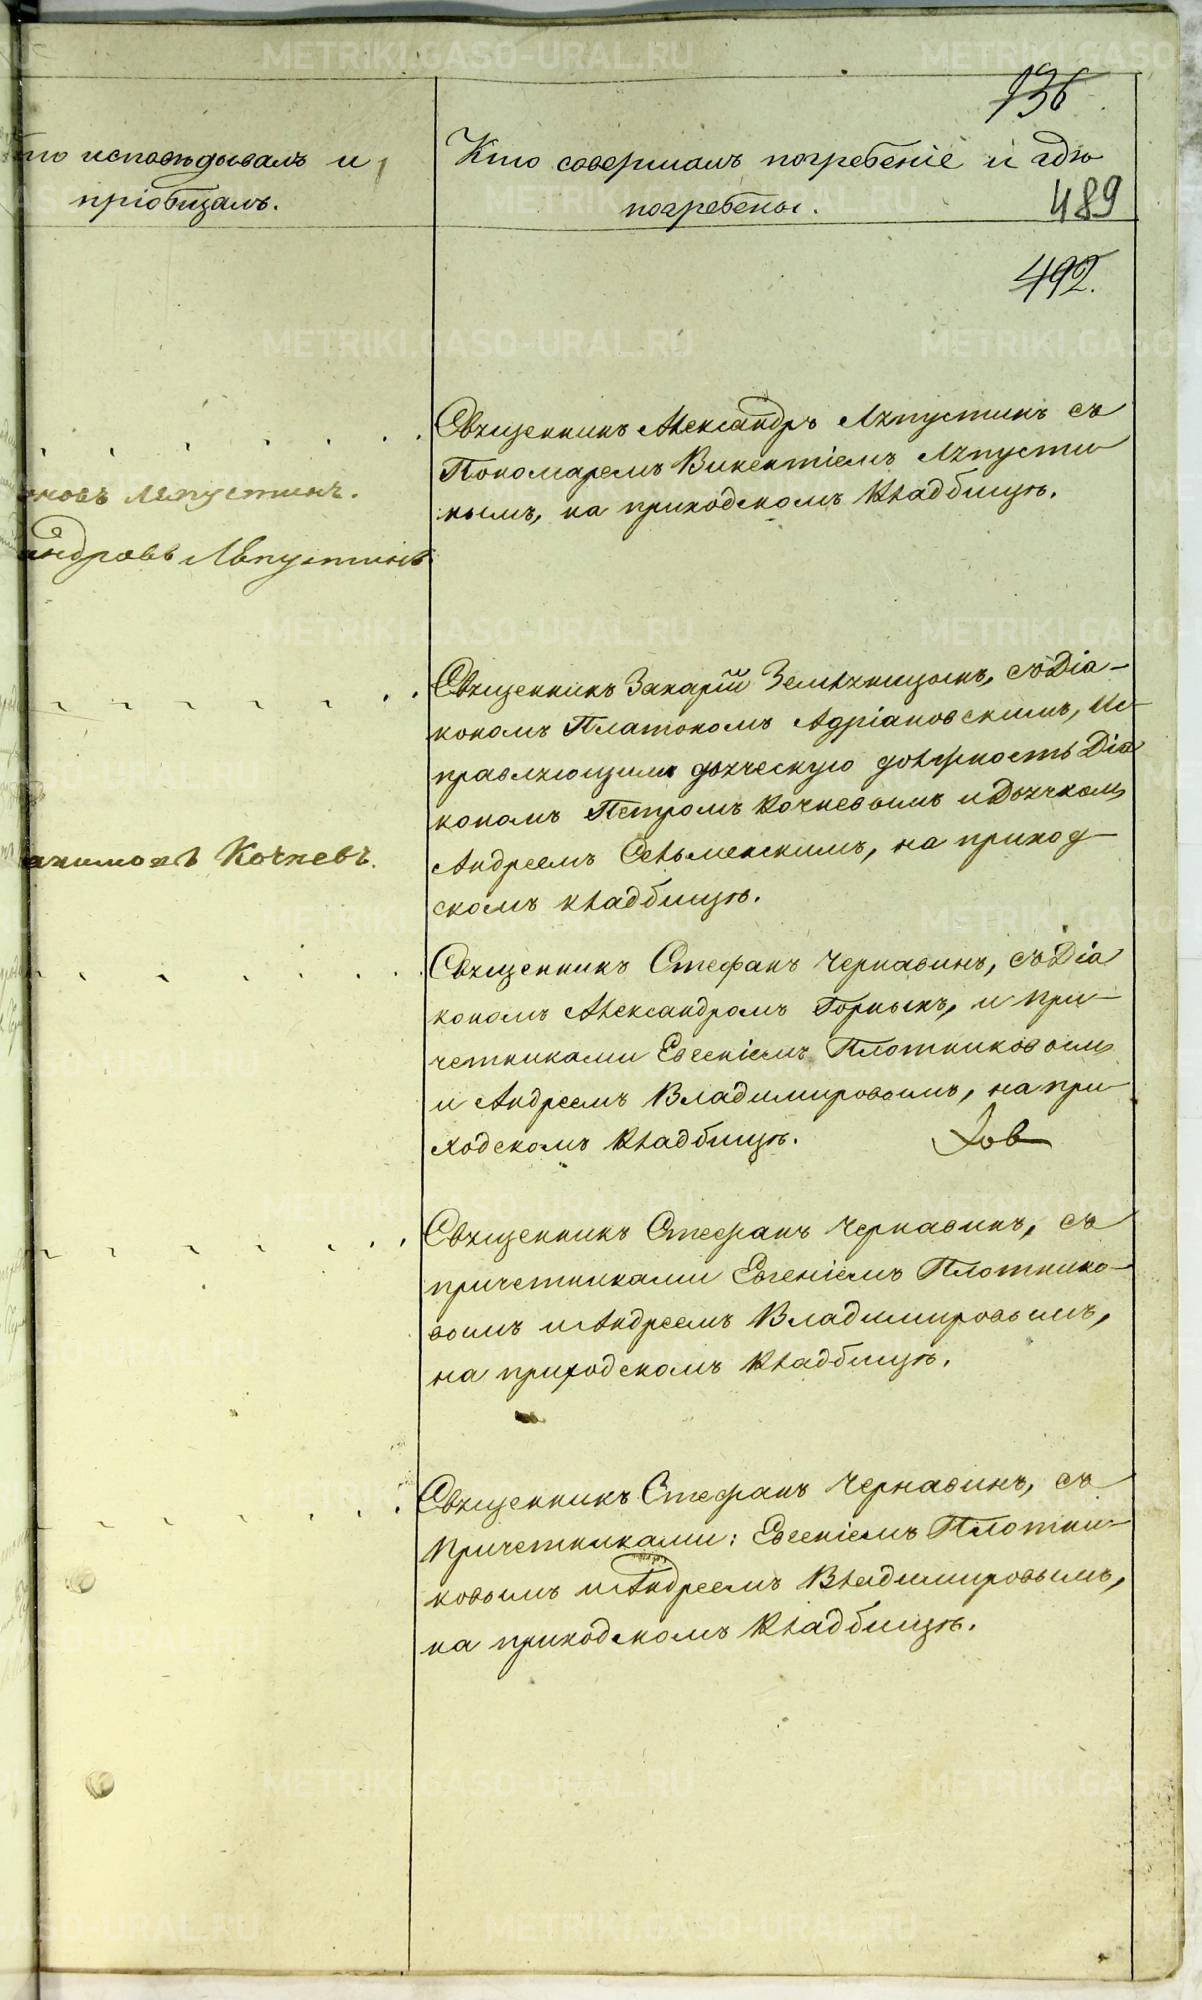 136
Кто исповѣдывалъ и
пріобщалъ.
Кто совершалъ погребеніе и гдѣ
погребены.
489
492.
Священникъ Александръ Ляпустинъ съ
Пономаремъ Викентіемъ Ляпусти
нымъ, на приходскомъ кладбищѣ.
Ляпустинъ.
Ляпустинъ
Священникъ Захарій Земляницынъ, съ Діа-
кономъ Платономъ Адріановскимъ, ис-
правляющимъ дьяческую должность Діа
кономъ Петромъ Кочневымъ и Дьячкомъ
Андреемъ Сельменскимъ, на приход
скомъ кладбищѣ.
Кочневъ.
Священникъ Стефанъ Чернавинъ, съ Діа
кономъ Александромъ Горныхъ, и при-
четниками Евгеніемъ Плотниковымъ
и Андреемъ Владимировымъ, на при
ходскомъ кладбищѣ.
Священникъ Стефанъ Чернавинъ, съ
причетниками Евгеніемъ Плотнико-
вымъ и Андреемъ Владимировымъ,
на приходскомъ кладбищѣ.
Священникъ Стефанъ Чернавинъ, съ
причетниками: Евгеніемъ Плотни-
ковымъ и Андреемъ Владимировымъ,
на приходскомъ кладбищѣ.
METRIKI.GASO-URAL.RU